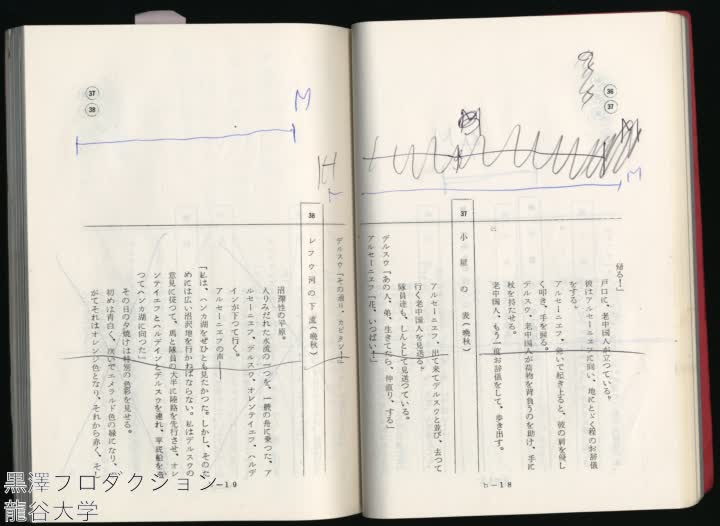 36
37
帰る！」
戸口に、老中国人が立っている。
彼はアルセーニエフに向い、地にとゞく程のお辞儀
をする。
アルセーニエフ、急いで起き上ると、彼の肩を優し
く叩き、手を握る。
デルスウ、老中国人が荷物を背負うのを助け、手に
杖を持たせる。
老中国人、もう一度お辞儀をして、歩き出す。
37 小屋の表（晩秋）
アルセーニエフ、出て来てデルスウと並び、去って
行く老中国人を見送る。
隊員達も、しんとして見送っている。
デルスウ「あの人、弟、生きてたら、仲直り、する」
アルセーニエフ「花、いっぱい！」
b－18
M
37
38
M
デルスウ「その通り、カピタン！」
38 レフウ河の下流（晩秋）
沼澤性の平原。
入りみだれた水流の一つを、一艘の舟に乗った、ア
ルセーニエフ、デルスウ、オレンテイエフ、ハルデ
インが下つて行く。
アルセーニエフの声――
「私は、ハンカ湖をぜひとも見たかつた。しかし、そのた
めには広い沼沢地を行かねばならない。私はデルスウの
意見に従つて、馬と隊員の大半に陸路を先行させ、オレ
ンテイエフとハルデインとデルスウを連れ、平底船を造
つてハンカ湖に向つた」
その日の夕焼けは特別の色彩を見せる。
初めは青白く、次いでエメラルド色の緑になり、
がてそれはオレンヂ色となり、それから赤く、そし
－19
黒澤プロダクション
龍谷大学